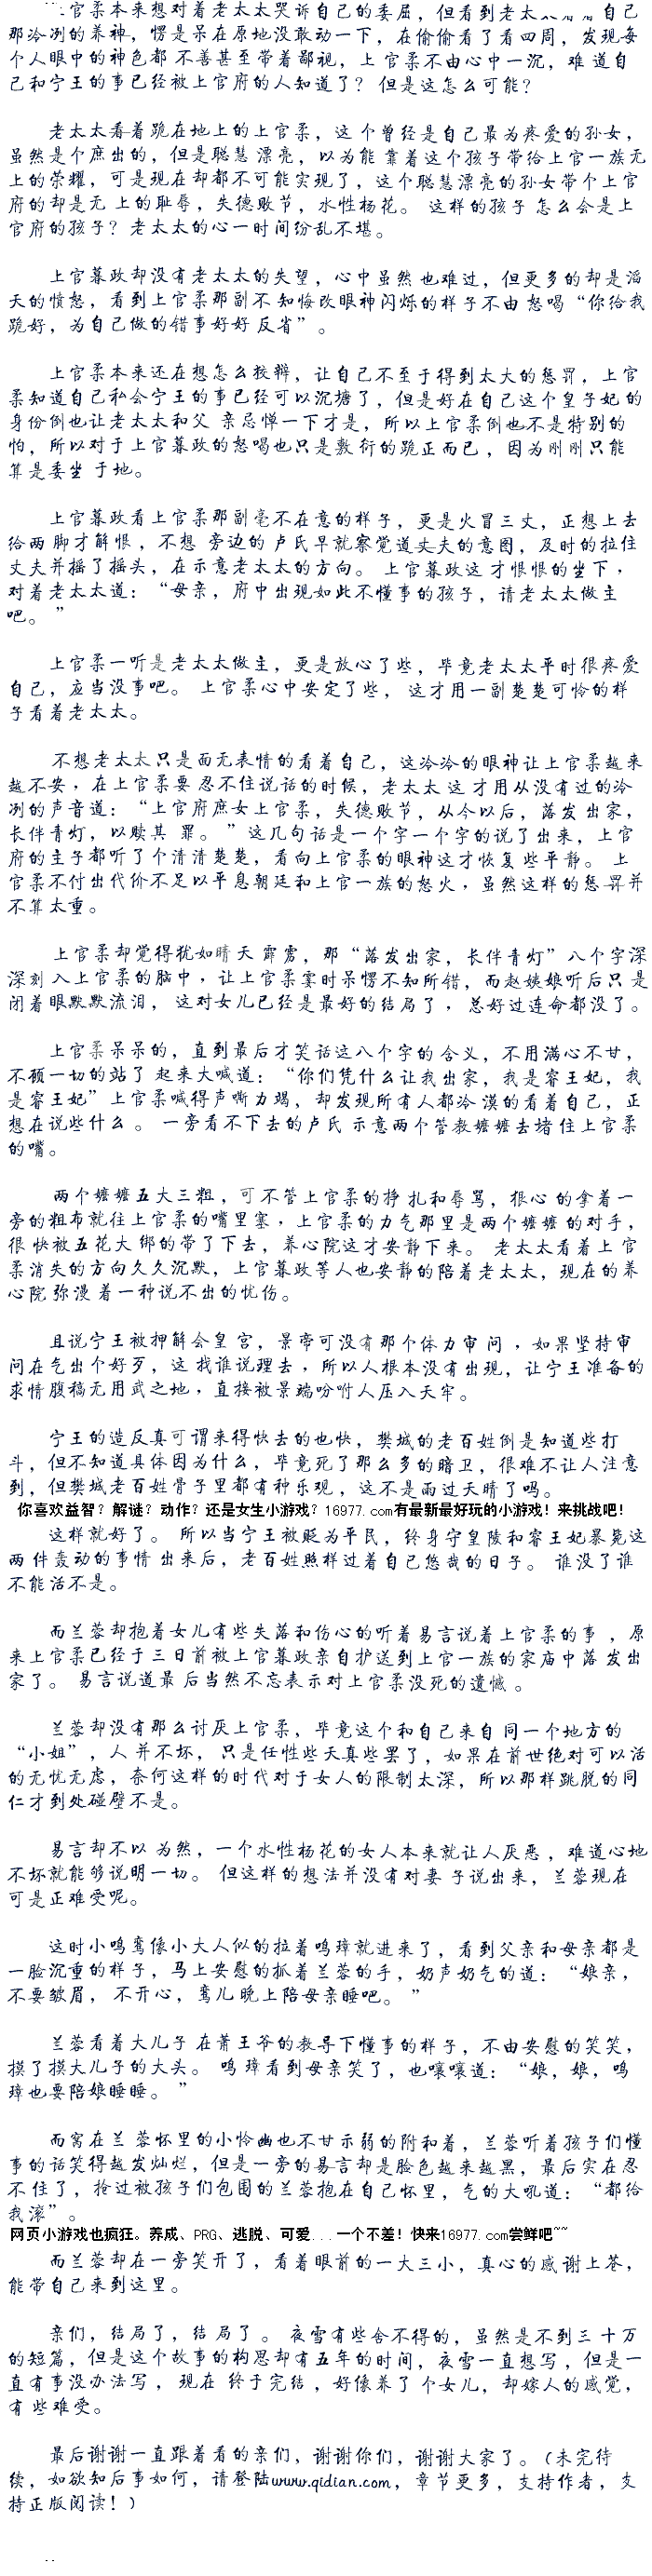 上官柔本来想对着老太太哭诉自己的委屈，但看到老太 自己
那冷冽的养神，愣是呆在原地没敢动一下，在偷偷看了看四周，发现每
个人眼中的神色都不善甚至带着鄙视，上官柔不由心中一沉，难道自
己和宁王的事已经被上官府的人知道了？但是这怎么可能？
老太太看着跪在地上的上官柔，这个曾经是自己最为疼爱的孙女，
虽然是个庶出的，但是聪慧漂亮，以为能靠着这个孩子带给上官一族无
上的荣耀，可是现在却都不可能实现了，这个聪慧漂亮的孙女带个上官
府的却是无上的耻辱，失德败节，水性杨花。这样的孩子怎么会是上
官府的孩子？老太太的心一时间纷乱不堪。
上官暮政却没有老太太的失望，心中虽然也难过，但更多的却是滔
天的愤怒，看到上官柔那副不知悔改眼神闪烁的样子不由怒喝“你给我
跪好，为自己做的错事好好反省”。
上官柔本来还在想怎么狡辩，让自己不至于得到太大的惩罚，上官
柔知道自己私会宁王的事已经可以沉塘了，但是好在自己这个皇子妃的
身份倒也让老太太和父亲忌惮一下才是，所以上官柔倒也不是特别的
怕，所以对于上官暮政的怒喝也只是敷衍的跪正而已，因为刚刚只能
算是委坐于地。
上官暮政看上官柔那副毫不在意的样子，更是火冒三丈，正想上去
给两脚才解恨，不想旁边的卢氏早就察觉道丈夫的意图，及时的拉住
丈夫并摇了摇头，在示意老太太的方向。上官暮政这才恨恨的坐下，
对着老太太道：“母亲，府中出现如此不懂事的孩子，请老太太做主
吧。”
上官柔一听是老太太做主，更是放心了些，毕竟老太太平时很疼爱
自己，应当没事吧。上官柔心中安定了些，这才用一副楚楚可怜的样
子看着老太太。
不想老太太只是面无表情的看着自己，这冷冷的眼神让上官柔越来
越不安，在上官柔要忍不住说话的时候，老太太这才用从没有过的冷
冽的声音道：“上官府庶女上官柔，失德败节，从今以后，落发出家，
长伴青灯，以赎其罪。”这几句话是一个字一个字的说了出来，上官
府的主子都听了个清清楚楚，看向上官柔的眼神这才恢复些平静。上
官柔不付出代价不足以平息朝廷和上官一族的怒火，虽然这样的惩罚并
不算太重。
上官柔却觉得犹如晴天霹雳，那“落发出家，长伴青灯”八个字深
深刻入上官柔的脑中，让上官柔霎时呆愣不知所错，而赵姨娘听后只是
闭着眼默默流泪，这对女儿已经是最好的结局了，总好过连命都没了。
上官柔呆呆的，直到最后才笑话这八个字的含义，不用满心不甘，
不顾一切的站了起来大喊道：“你们凭什么让我出家，我是睿王妃，我
是睿王妃”上官柔喊得声嘶力竭，却发现所有人都冷漠的看着自己，正
想在说些什么。一旁看不下去的卢氏示意两个管教嬷嬷去堵住上官柔
的嘴。
两个嬷嬷五大三粗，可不管上官柔的挣扎和辱骂，狠心的拿着一
旁的粗布就往上官柔的嘴里塞，上官柔的力气那里是两个嬷嬷的对手，
很快被五花大绑的带了下去，养心院这才安静下来。老太太看着上官
柔消失的方向久久沉默，上官暮政等人也安静的陪着老太太，现在的养
心院弥漫着一种说不出的忧伤。
且说宁王被押解会皇宫，景帝可没有那个体力审问，如果坚持审
问在气出个好歹，这找谁说理去，所以人根本没有出现，让宁王准备的
求情腹稿无用武之地，直接被景端吩咐人压入天牢。
宁王的造反真可谓来得快去的也快，樊城的老百姓倒是知道些打
斗，但不知道具体因为什么，毕竟死了那么多的暗卫，很难不让人注意
到，但樊城老百姓骨子里都有种乐观，这不是雨过天晴了吗。
你喜欢益智？解谜？动作？还是女生小游戏？16977.com有最新最好玩的小游戏！来挑战吧！
这样就好了。所以当宁王被贬为平民，终身守皇陵和睿王妃暴毙这
两件轰动的事情出来后，老百姓照样过着自己悠哉的日子。谁没了谁
不能活不是。
而兰蓉却抱着女儿有些失落和伤心的听着易言说着上官柔的事，原
来上官柔已经于三日前被上官暮政亲自护送到上官一族的家庙中落发出
家了。易言说道最后当然不忘表示对上官柔没死的遗憾。
兰蓉却没有那么讨厌上官柔，毕竟这个和自己来自同一个地方的
“小姐”，人并不坏，只是任性些天真些罢了，如果在前世绝对可以活
的无忧无虑，奈何这样的时代对于女人的限制太深，所以那样跳脱的同
仁才到处碰壁不是。
易言却不以为然，一个水性杨花的女人本来就让人厌恶，难道心地
不坏就能够说明一切。但这样的想法并没有对妻子说出来，兰蓉现在
可是正难受呢。
这时小鸣鸾像小大人似的拉着鸣璋就进来了，看到父亲和母亲都是
一脸沉重的样子，马上安慰的抓着兰蓉的手，奶声奶气的道：“娘亲，
不要皱眉，不开心，鸾儿晚上陪母亲睡吧。”
兰蓉看着大儿子在萧王爷的教导下懂事的样子，不由安慰的笑笑，
摸了摸大儿子的大头。鸣璋看到母亲笑了，也嚷嚷道：“娘，娘，鸣
璋也要陪娘睡睡。”
而窝在兰蓉怀里的小怜幽也不甘示弱的附和着，兰蓉听着孩子们懂
事的话笑得越发灿烂，但是一旁的易言却是脸色越来越黑，最后实在忍
不住了，抢过被孩子们包围的兰蓉抱在自己怀里，气的大吼道：“都给
我滚”。
网页小游戏也疯狂。养成、PRG、逃脱、可爱...一个不差！快来16977.com尝鲜吧~~
而兰蓉却在一旁笑开了，看着眼前的一大三小，真心的感谢上苍，
能带自己来到这里。
亲们，结局了，结局了。夜雪有些舍不得的，虽然是不到三十万
的短篇，但是这个故事的构思却有五年的时间，夜雪一直想写，但是一
直有事没办法写，现在终于完结，好像养了个女儿，却嫁人的感觉，
有些难受。
最后谢谢一直跟着看的亲们，谢谢你们，谢谢大家了。(未完待
续，如欲知后事如何，请登陆www.qidian.com，章节更多，支持作者，支
持正版阅读！)